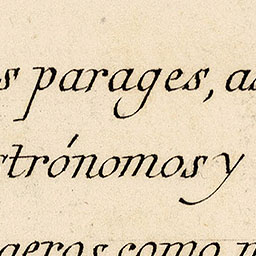 s parages, as
strónomos y
geros como